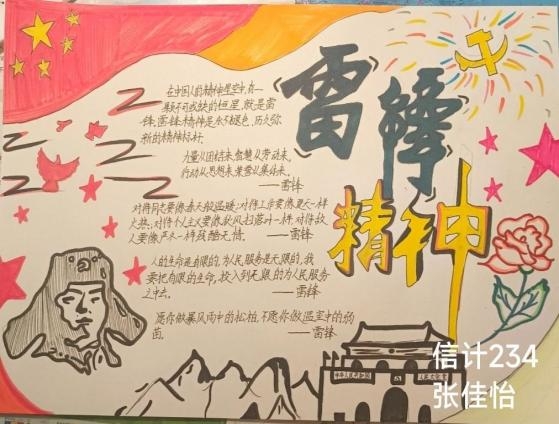 雷锋
精神
在中国人的精神星空中,有一
颗不可或缺的恒星,就是雷
锋,雷锋精神是永不褪色、历久弥
新的精神标杆.
力量从团结来,智慧从劳动来,
行动从思想来,荣誉从集体来.
——雷锋
对待同志要像春天般温暖;对待工作要像夏天一样
火热;对待个人主义要像秋风扫落叶一样;对待敌
人要像严冬一样残酷无情.——雷锋
人的生命是有限的,为人民服务是无限的,我
要把有限的生命,投入到无限的为人民服务
之中去.——雷锋
愿你做暴风雨中的松柏,不愿你做温室中的弱
苗.——雷锋
信计234
张佳怡